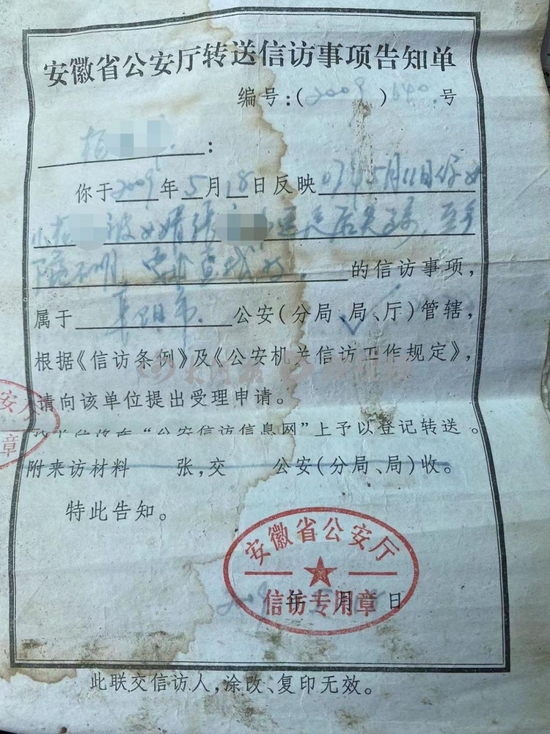 安徽省公安厅转送信访事项告知单
编号:(2009)640号
:
你于2009年5月18日反映07年5月11日你女
小 被女婿张 后失踪,至今
下落不明,要求查找的的信访事项,
属于阜阳市公安(分局、局、厅)管辖,
根据《信访条例》及《公安机关信访工作规定》,
请向该单位提出受理申请。
“公安信访信息网”上予以登记转送。
附来访材料 张,交 公安(分局、局)收。
特此告知。
安徽省公安厅
信访专用章
年 月 日
安人
章
此联交信访人,涂改、复印无效。